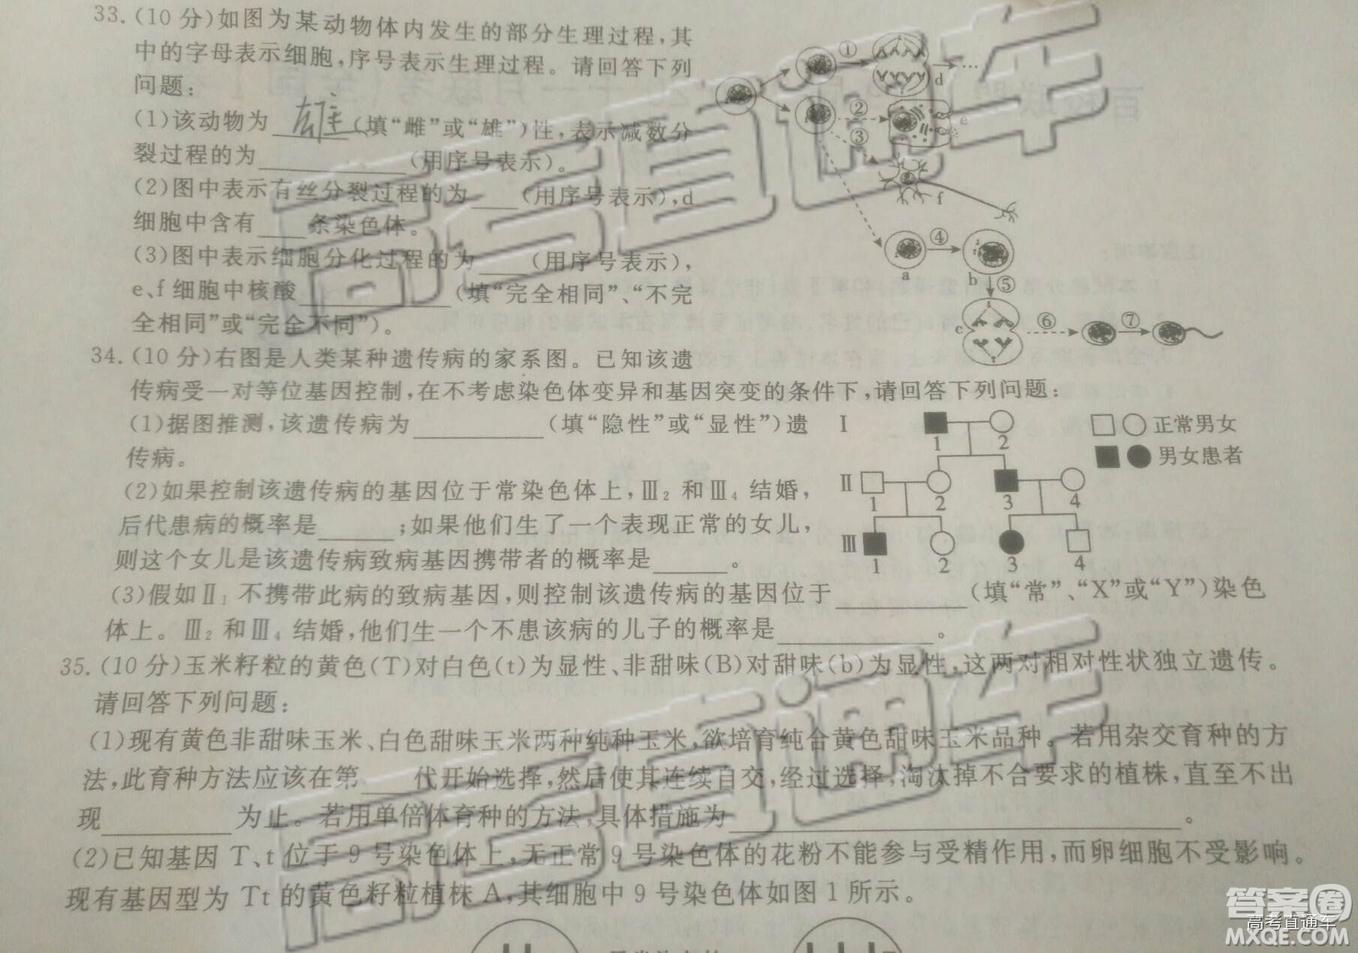 33.(10 分)如图为某动物体内发生的部分生理过程,其
中的字母表示细胞,序号表示生理过程。请回答下列
问题:
(1)该动物为 雄 (填“雌”或“雄”)性,表示减数分
裂过程的为____________(用序号表示)。
(2)图中表示有丝分裂过程的为____(用序号表示),d
细胞中含有____条染色体。
(3)图中表示细胞分化过程的为____(用序号表示),
e、f 细胞中核酸____________(填“完全相同”、“不完
全相同”或“完全不同”)。
① d …
② e
③ f
④
a b ⑤
c ⑥ ⑦
34.(10 分)右图是人类某种遗传病的家系图。已知该遗
传病受一对等位基因控制,在不考虑染色体变异和基因突变的条件下,请回答下列问题:
(1)据图推测,该遗传病为__________(填“隐性”或“显性”)遗
传病。
(2)如果控制该遗传病的基因位于常染色体上,Ⅲ2 和Ⅲ4 结婚,
后代患病的概率是______;如果他们生了一个表现正常的女儿,
则这个女儿是该遗传病致病基因携带者的概率是______。
Ⅰ 1 2
正常男女
男女患者
Ⅱ 1 2 3 4
Ⅲ 1 2 3 4
(3)假如Ⅱ1 不携带此病的致病基因,则控制该遗传病的基因位于__________(填“常”、“X”或“Y”)染色
体上。Ⅲ2 和Ⅲ4 结婚,他们生一个不患该病的儿子的概率是____________。
35.(10 分)玉米籽粒的黄色(T)对白色(t)为显性、非甜味(B)对甜味(b)为显性,这两对相对性状独立遗传。
请回答下列问题:
(1)现有黄色非甜味玉米、白色甜味玉米两种纯种玉米,欲培育纯合黄色甜味玉米品种。若用杂交育种的方
法,此育种方法应该在第____代开始选择,然后使其连续自交,经过选择,淘汰掉不合要求的植株,直至不出
现__________为止。若用单倍体育种的方法,具体措施为____________________________________。
(2)已知基因 T、t 位于 9 号染色体上,无正常 9 号染色体的花粉不能参与受精作用,而卵细胞不受影响。
现有基因型为 Tt 的黄色籽粒植株 A,其细胞中 9 号染色体如图 1 所示。
高考直通车
高考直通车
答案圈
高考直通车
MXQE.COM